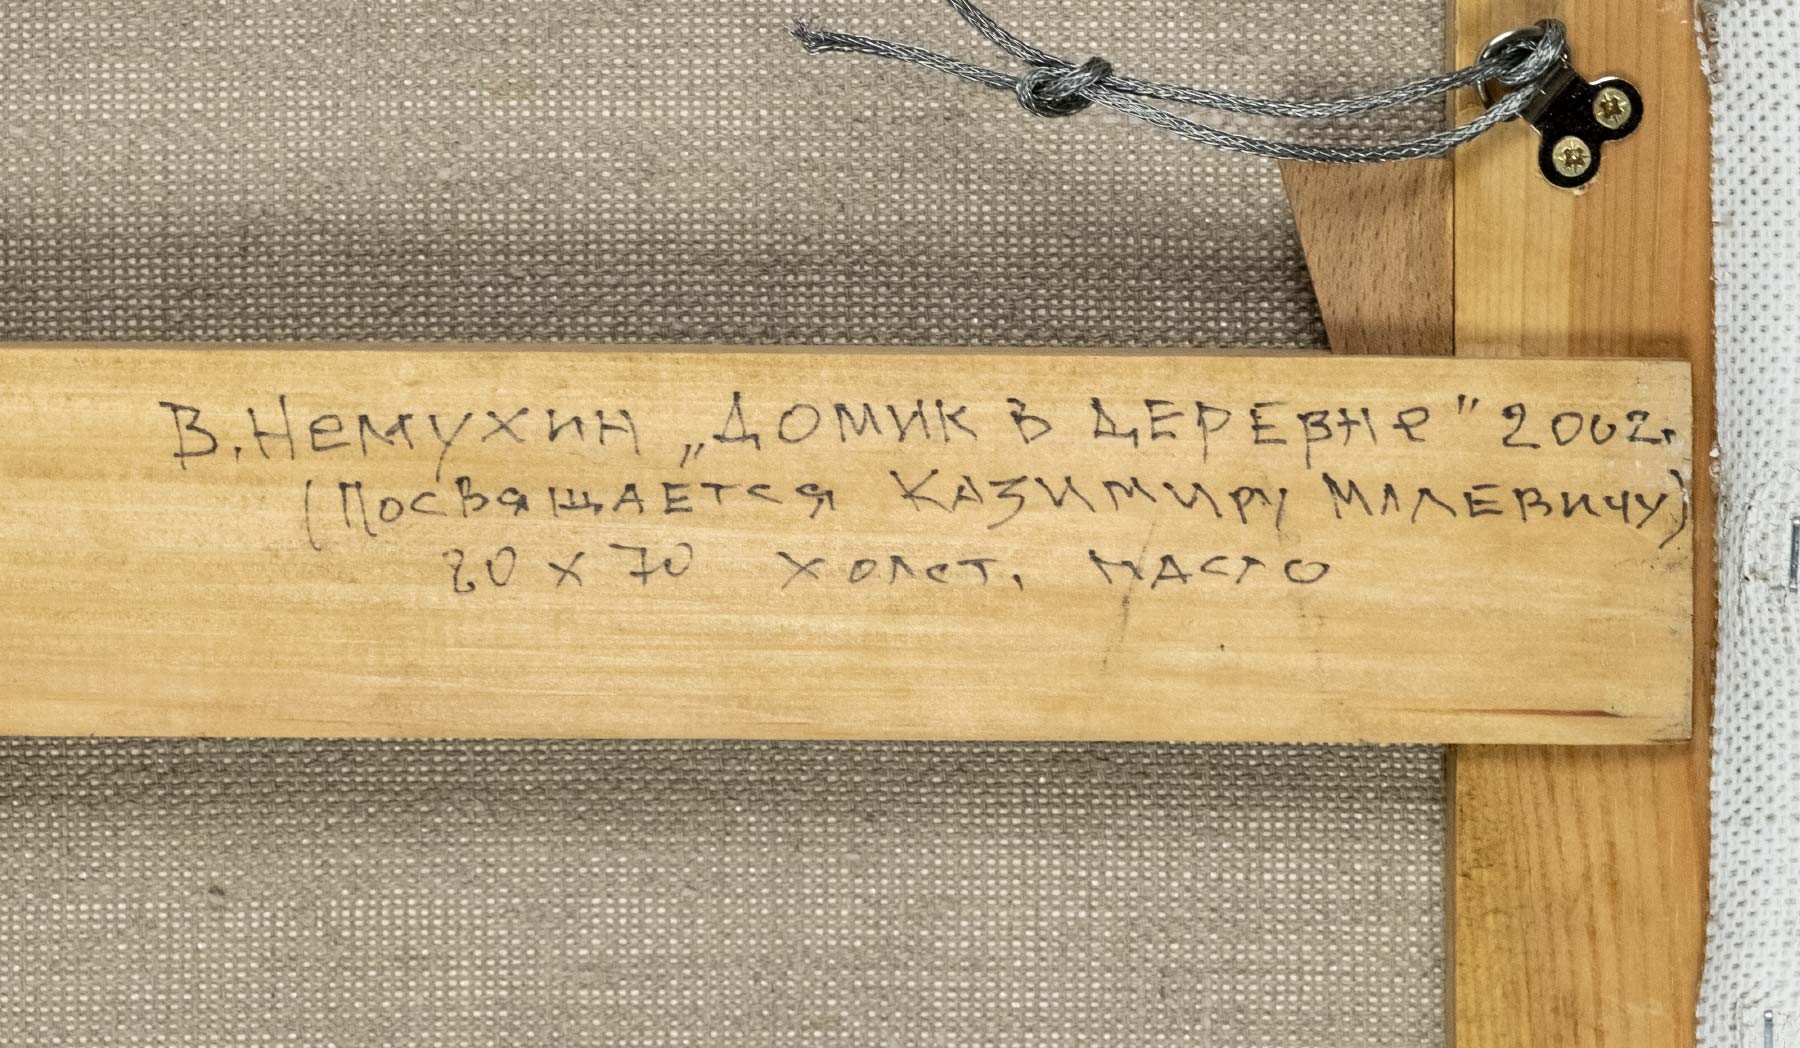 В. Немухин „Домик в деревне" 2002.
(Посвящается Казимиру Малевичу)
80 х 70 холст. масло